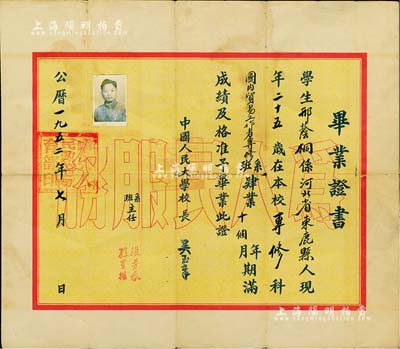 上海陽明拍賣
畢業證書
學生邢蔭桐係河北省束鹿縣人現
年二十五歲在本校專修科
國內貿易工作專修班系肄業十個月年期滿
成績及格准予畢業此證
中國人民大學校長 吳玉章
系班主任
公曆一九五二年七月 日
為人民服務